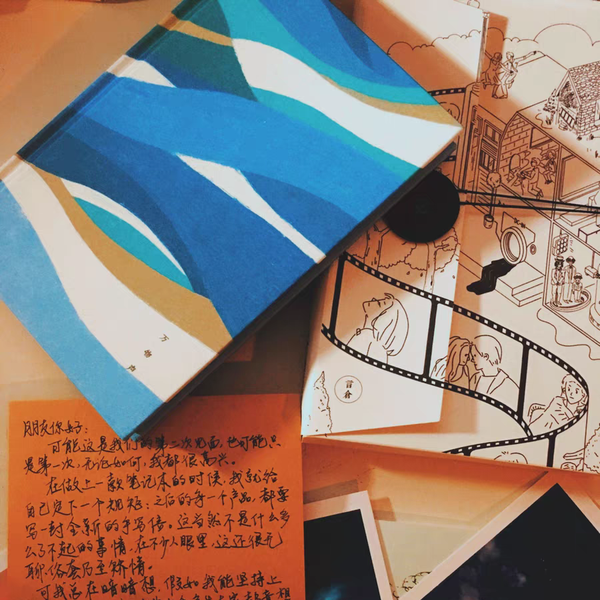 朋友你好：
可能这是我们的第二次见面，也可能只
是第一次，无论如何，我都很高兴。
在做上一款笔记本的时候，我就给
自己定下一个规矩：之后的每一个产品，都要
写一封全新的手写信。这当然不是什么多
么了不起的事情，在不少人眼里，这还很无
聊、俗套乃至矫情。
可我总在暗暗想，假如我能坚持上